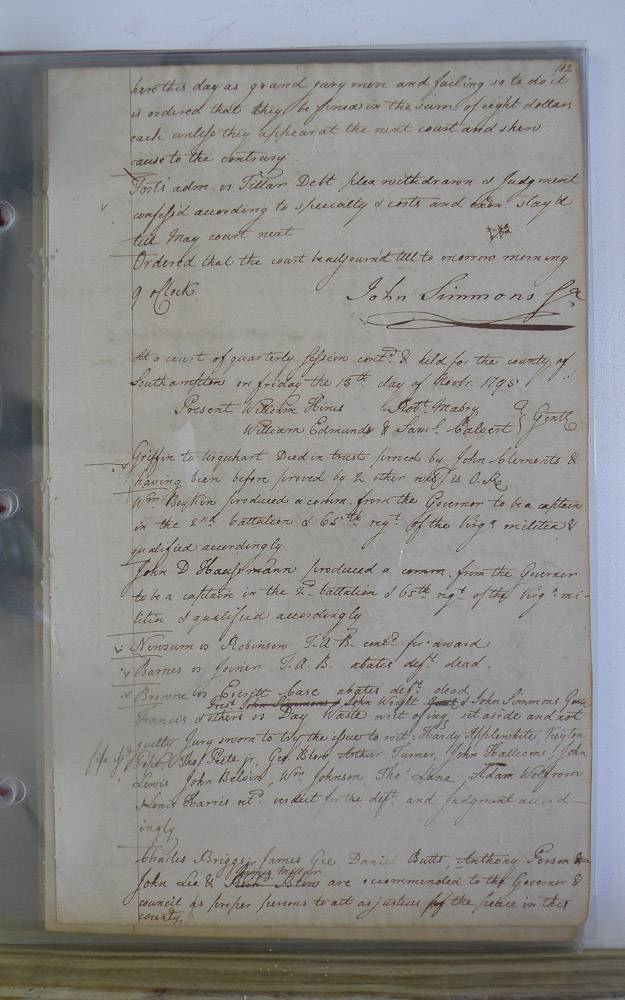 182
here this day as grand jury men and failing so to do it
is ordered that they be fined in the sum of eight dollars
each unless they appear at the next court and shew
cause to the contrary
Forts adm. vs Tillar Debt plea withdrawn & Judgment
confess'd according to specialty & costs and exon. stay'd
till May court next
Ordered that the court be adjourn'd till to morrow morning
9 oClock
John Simmons
At a court of quarterly session cont.d & held for the county of
Southampton on friday the 13th day of Novbr. 1795
Present William Hines Robt. Mabry
William Edmunds & Saml. Calvert } Gentl
Griffin to Urquhart Deed in trust proved by John Clements &
having been before proved by 2 other is O.R
Wm Boykin produced a comm. from the Governor to be a captain
in the 2nd battalion & 65th regt. of the Virga militia &
qualified accordingly
John D Haussmann produced a comm. from the Governor
to be a captain in the 2d battalion & 65th regt of the Virga mi-
litia & qualified accordingly
Newsum vs Robinson T.A.B. contd for award
Barnes vs Joiner T.A.B. abates deft. dead
Browne vs Everitt Case abates deft. dead
Prest. John Simmons & John Wright Gent & John Simmons Gent
Francis & others vs Day Waste writ of inq. set aside and not
guilty Jury sworn to try the issue to wit: Hardy Applewhite,
Thos Peete jr, Geo. Blow Arthur Turner, John Hallcome, John
Lewis John Belvin, Wm Johnson, Thos Lane, Adam Wolfrom
& Lewis Harris retd. verdict for the deft. and Judgment accord-
ingly
Charles Briggs, James Gee Daniel Butts, Anthony Person &
James
John Lee & Rich Blow are recommended to the Governor &
council as proper persons to act as justices of the peace in this
county